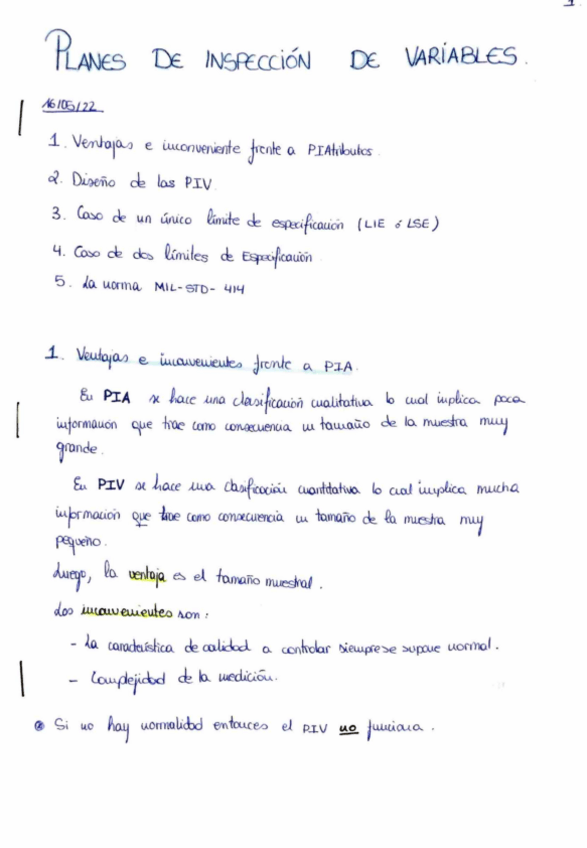 1
PLANES DE INSPECCIÓN DE VARIABLES.
16/05/22
1. Ventajas e inconveniente frente a PIAtributos.
2. Diseño de los PIV
3. Caso de un único límite de especificación (LIE ó LSE)
4. Caso de dos límiles de Especificación
5. La norma MIL-STD-414
1. Ventajas e inconvenientes frente a PIA.
En PIA se hace una clasificación cualitativa lo cual implica poca
información que trae como consecuencia un tamaño de la muestra muy
grande.
En PIV se hace una clasificación cuantitativa lo cual implica mucha
información que trae como consecuencia un tamaño de la muestra muy
pequeño.
Luego, la ventaja es el tamaño muestral.
Los inconvenientes son:
- La característica de calidad a controlar siempre se supone normal.
- Complejidad de la medición.
Si no hay normalidad entonces el PIV no funciona.